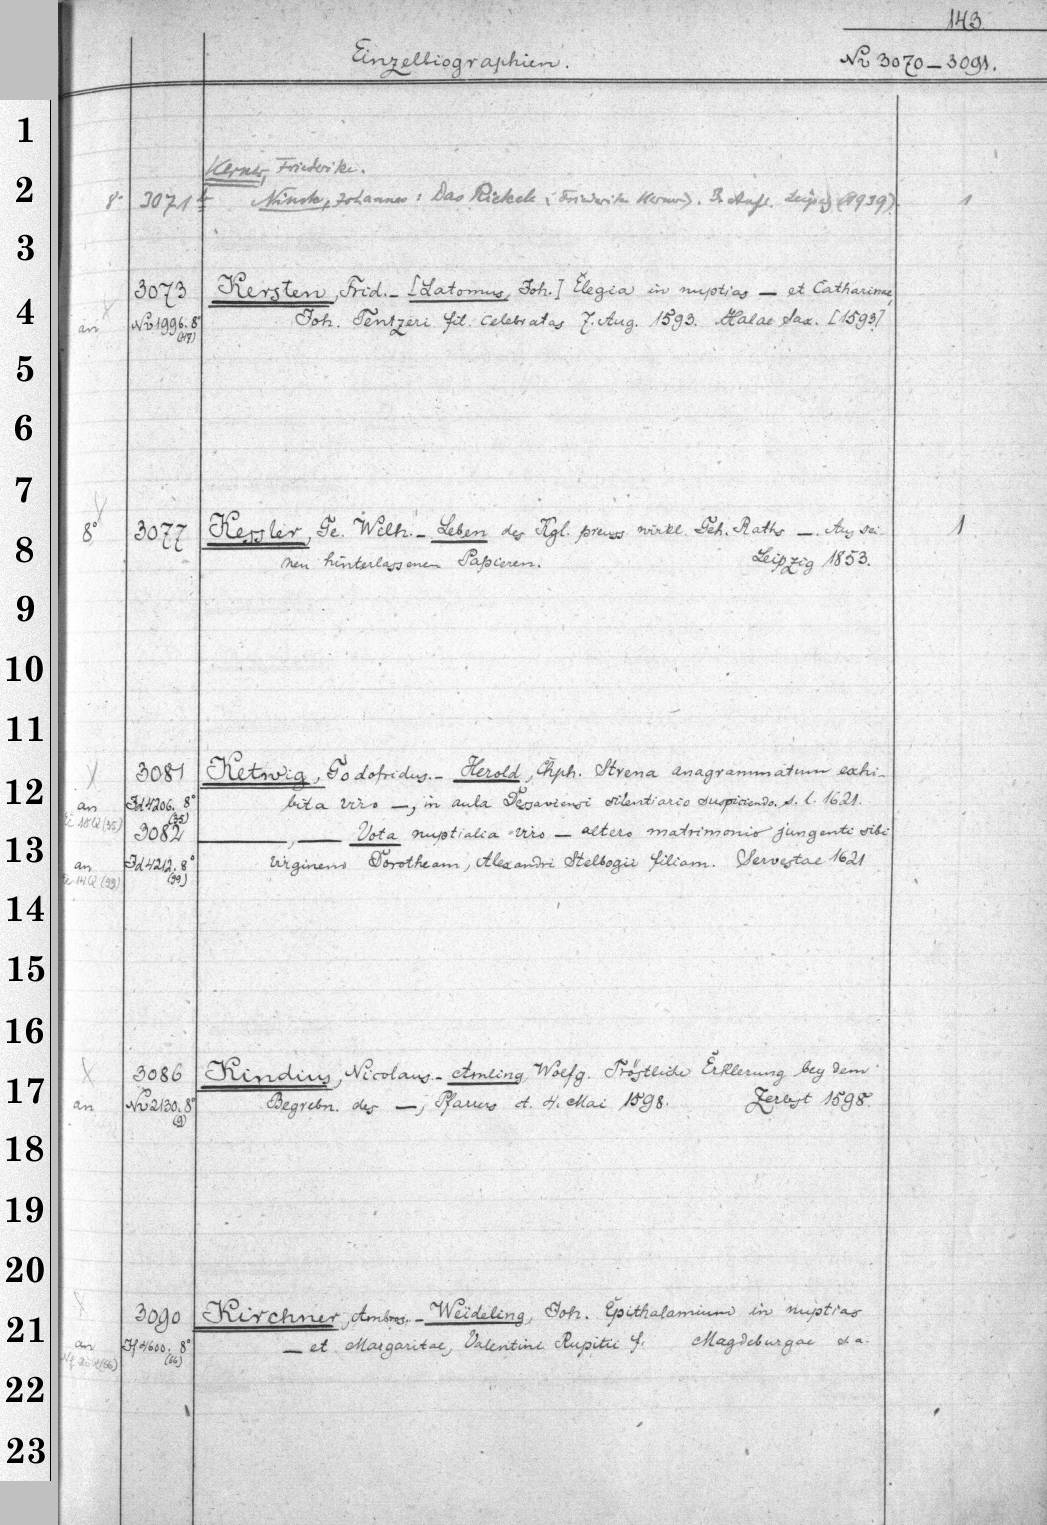 143
Einzelbiographien.
No 3070 – 3091.
1
2
3
4
5
6
7
8
9
10
11
12
13
14
15
16
17
18
19
20
21
22
23
Kerner, Friederike.
8° 3071 b Ninck, Johannes: Das Rickele (Friederike Kerner). 3. Aufl. Leipzig (1939). 1
3073 Kersten, Frid. – [Latomus, Joh.] Elegia in nuptias — et Catharinae,
an No 1996. 8° (17) Joh. Tentzeri fil. celebratas 7. Aug. 1593. Halae Sax. [1593]
8° 3077 Kessler, Ge. Wilh. – Leben des Kgl. preuss. wirkl. Geh. Raths —. Aus sei- 1
nen hinterlassenen Papieren. Leipzig 1853.
3081 Ketwig, Godofridus. – Herold, Chph. Strena anagrammatum exhi-
an Id 4206. 8° (35) bita viro —, in aula Dessaviensi silentiario suspiciendo. s. l. 1621.
3082 —, — Vota nuptialia viro — altero matrimonio jungenti sibi
an Id 4212. 8° (39) virginem Dorotheam, Alexandri Stelbogii filiam. Servestae 1621
3086 Kindius, Nicolaus. – Amling, Wolfg. Tröstliche Erklerung bey dem
an No 2130. 8° (9) Begrebn. des —, Pfarrers d. 4. Mai 1598. Zerbst 1598.
3090 Kirchner, Ambros. – Weideling, Joh. Epithalamium in nuptias
an If 4600. 8° (66) — et Margaritae, Valentini Rupitii f. Magdeburgae s. a.